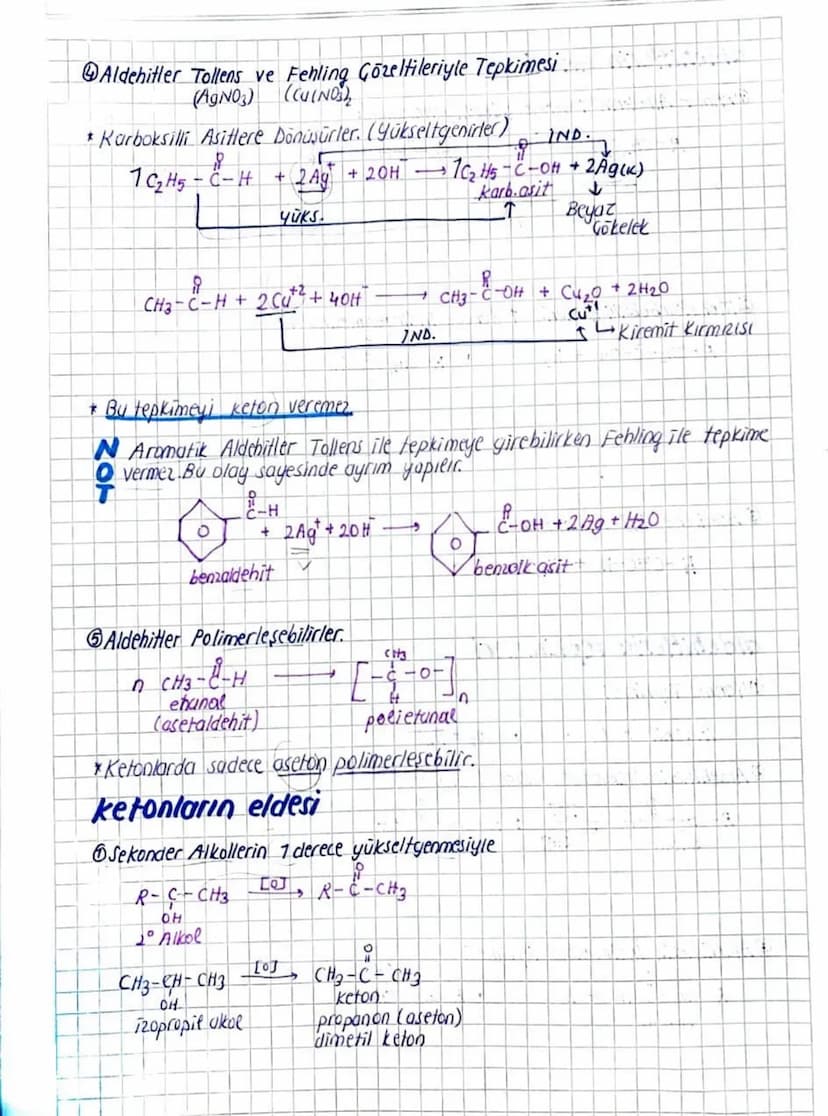 ④Aldehitler Tollens ve Fehling Çözeltileriyle Tepkimesi.
(AgNO3) (Cu(NO3)2
* Karboksilli Asitlere Dönüşürler. (Yükseltgenirler) İND.
O O
1 C2H5 - C - H + 2Ag+ + 2OH- → 1C2H5 - C - OH + 2Ag(k)
karb.asit
yüks. Beyaz
Çökelek
O O
CH3 - C - H + 2Cu+2 + 4OH- → CH3 - C - OH + Cu2O + 2H2O
Cu+1
İND. Kiremit Kırmızısı
* Bu tepkimeyi keton veremez
NOT Aromatik Aldehitler Tollens ile tepkimeye girebilirken Fehling ile tepkime
vermez. Bu olay sayesinde ayrım yapılır.
O O
C - H + 2Ag+ + 2OH- → C - OH + 2Ag + H2O
benzaldehit benzoik asit
⑤Aldehitler Polimerleşebilirler.
O CH3
n CH3 - C - H → [ - C - O - ]n
H
etanal polietanal
(asetaldehit)
* Ketonlarda sadece aseton polimerleşebilir.
Ketonların eldesi
①Sekonder Alkollerin 1 derece yükseltgenmesiyle
O
R - C - CH3 [O] → R - C - CH3
OH
2° Alkol
O
CH3 - CH - CH3 [O] → CH3 - C - CH3
OH keton
izopropil alkol propanon (aseton)
dimetil keton